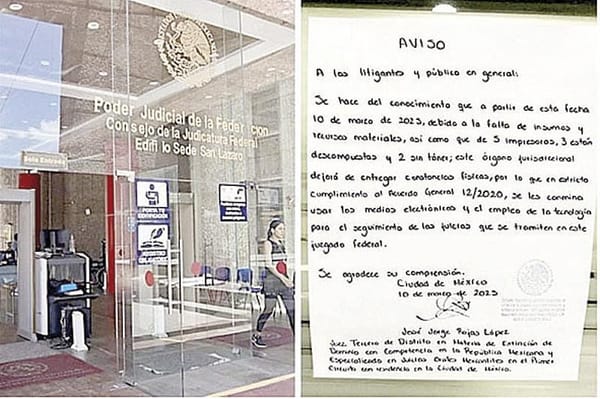 Poder Judicial de la Federacion
Consejo de la Judicatura Federal
Edificio Sede San Lázaro
Solo Entrada
PORTA TU
IDENTIFICACIÓN
REGISTRO
AVISO
A los litigantes y público en general:
Se hace del conocimiento que a partir de esta fecha
10 de marzo de 2023, debido a la falta de insumos y
recursos materiales, así como que de 5 impresoras, 3 están
descompuestas y 2 sin tóner; este órgano jurisdiccional
dejará de entregar constancias físicas, por lo que en estricto
cumplimiento al Acuerdo General 12/2020, se les conmina
usar los medios electrónicos y el empleo de la tecnología
para el seguimiento de los juicios que se tramiten en este
juzgado federal.
Se agradece su comprensión.
Ciudad de México
10 de marzo de 2023
José Jorge Rojas López
Juez Tercero de Distrito en Materia de Extinción de
Dominio con Competencia en la República Mexicana y
Especializado en Juicios Orales Mercantiles en el Primer
Circuito con residencia en la Ciudad de México.